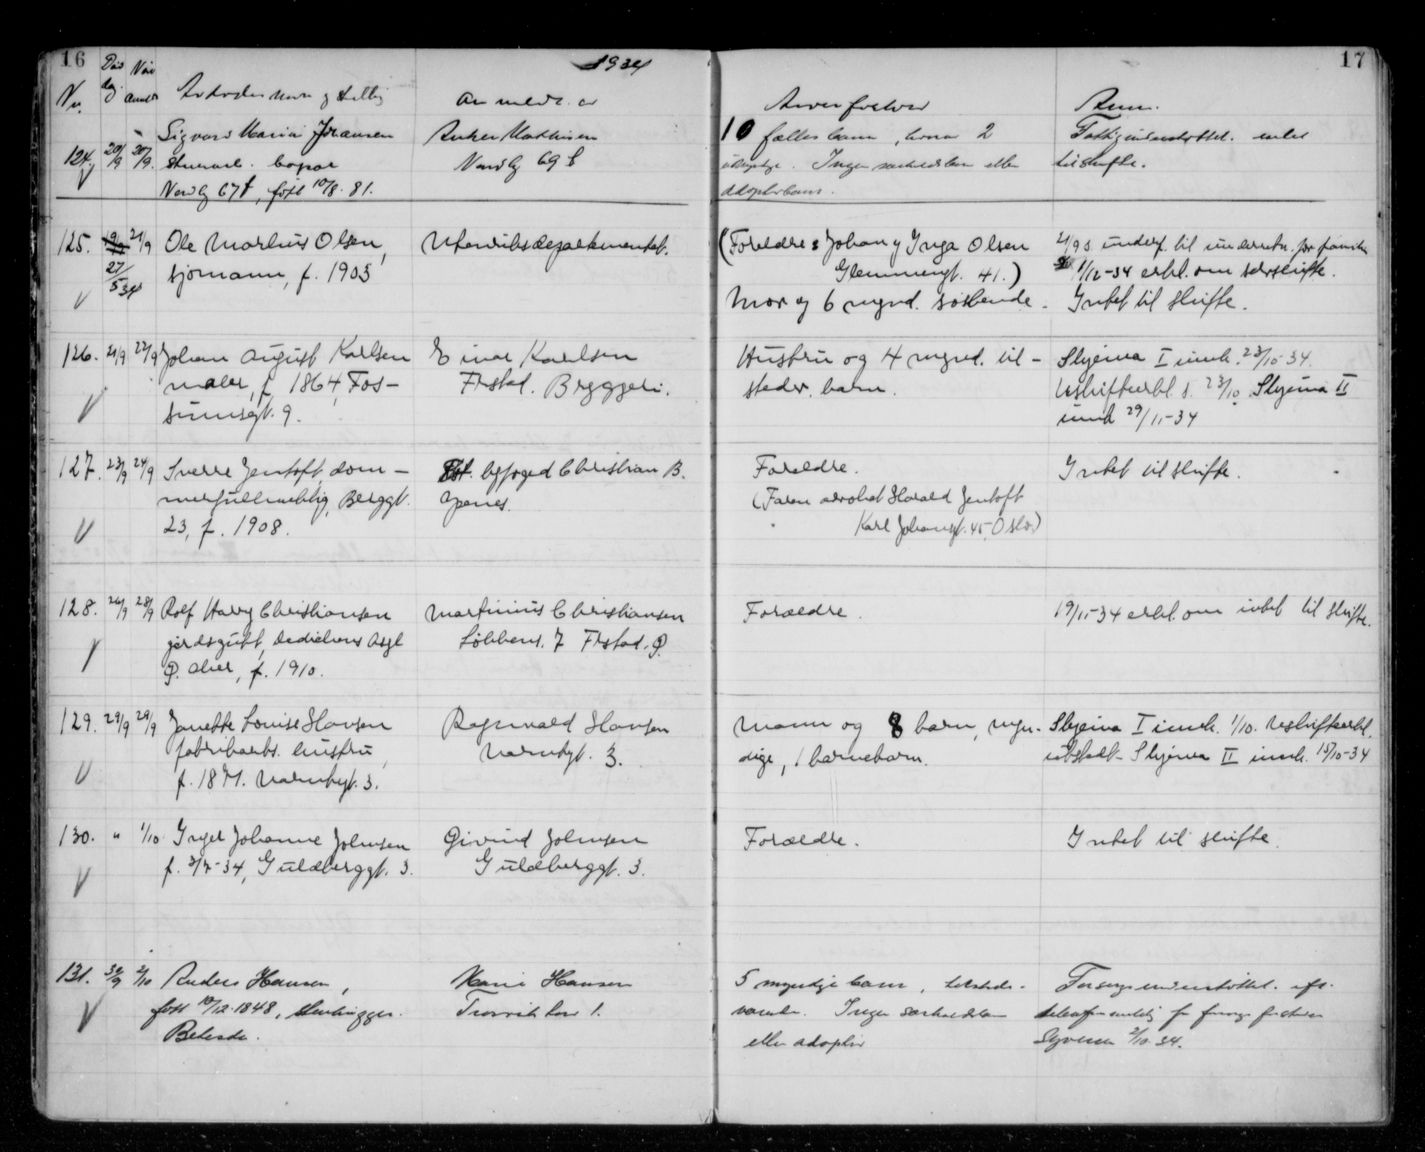 16
1934
17
Nr.
Døds
dag
Avdødes navn og stilling
Anmelder
Arveforhold
Anm.
124.
20/9
20/9.
Sigvard Maria Johansen
Nordbg 67 b, født 10/8. 81.
Anker Mathisen
Nordbg 69 b
10 fælles barn, hvorav 2
umyndige. Ingen særkuldsbarn eller
adoptivbarn.
Fattigunderstøttet. intet
til skifte.
125.
21/9
27/5 34
Ole Marlius Olsen,
sjømann, f. 1903
Utenriksdepartementet.
(Foreldre: Johan og Inga Olsen
Glemmengt. 41.)
Mor og 6 mynd. søskende.
1/12-34 erkl. om særskifte.
Intet til skifte.
126.
21/9
22/9
Johan August Karlsen
maler, f. 1864, Fos-
sumsgt. 9.
Einar Karlsen
Frstad. Bryggeri.
Hustru og 4 mynd. til-
steder. barn.
Skjema I innk. 23/10-34.
Uskifteerkl. s. 23/10. Skjema II
innk 29/11-34
127.
23/9
24/9
Sverre Jentoft, dom-
merfullmektig, Berggt.
23, f. 1908.
byfoged Christian B.
Apenes.
Foreldre.
(Faren advokat Harald Jentoft
Karl Johansgt. 45, Oslo)
Intet til skifte.
128.
26/9
28/9
Rolf Harry Christiansen
gårdsgutt,
Ø. Aker, f. 1910.
Martinius Christiansen
Løkkens. 7 Frstad. Ø.
Forældre.
19/11-34 erkl. om intet til skifte.
129.
29/9
29/9
Janette Lovise Hansen
fabrikarb. hustru,
f. 1871. Varnabgt. 3.
Ragnvald Hansen
Varnabgt. 3.
Mann og 8 barn, myn-
dige, 1 barnebarn.
Skjema I innk. 1/10. Uskifteerkl.
utstedt - Skjema II innk. 15/10-34
130.
"
1/10
Inger Johanne Johnsen
f. 3/7-34, Guldberggt. 3.
Eivind Johnsen
Guldberggt. 3.
Forældre.
Intet til skifte.
131.
30/9
2/10
Anders Hansen,
født 10/12.1848, stenhugger.
Betesda.
Marie Hansen
Trosvikbov 1.
5 myndige barn, tilstede-
værende. Ingen særkuldsbarn
eller adoptiv
Forsorgsunderstøttet.
2/10-34.